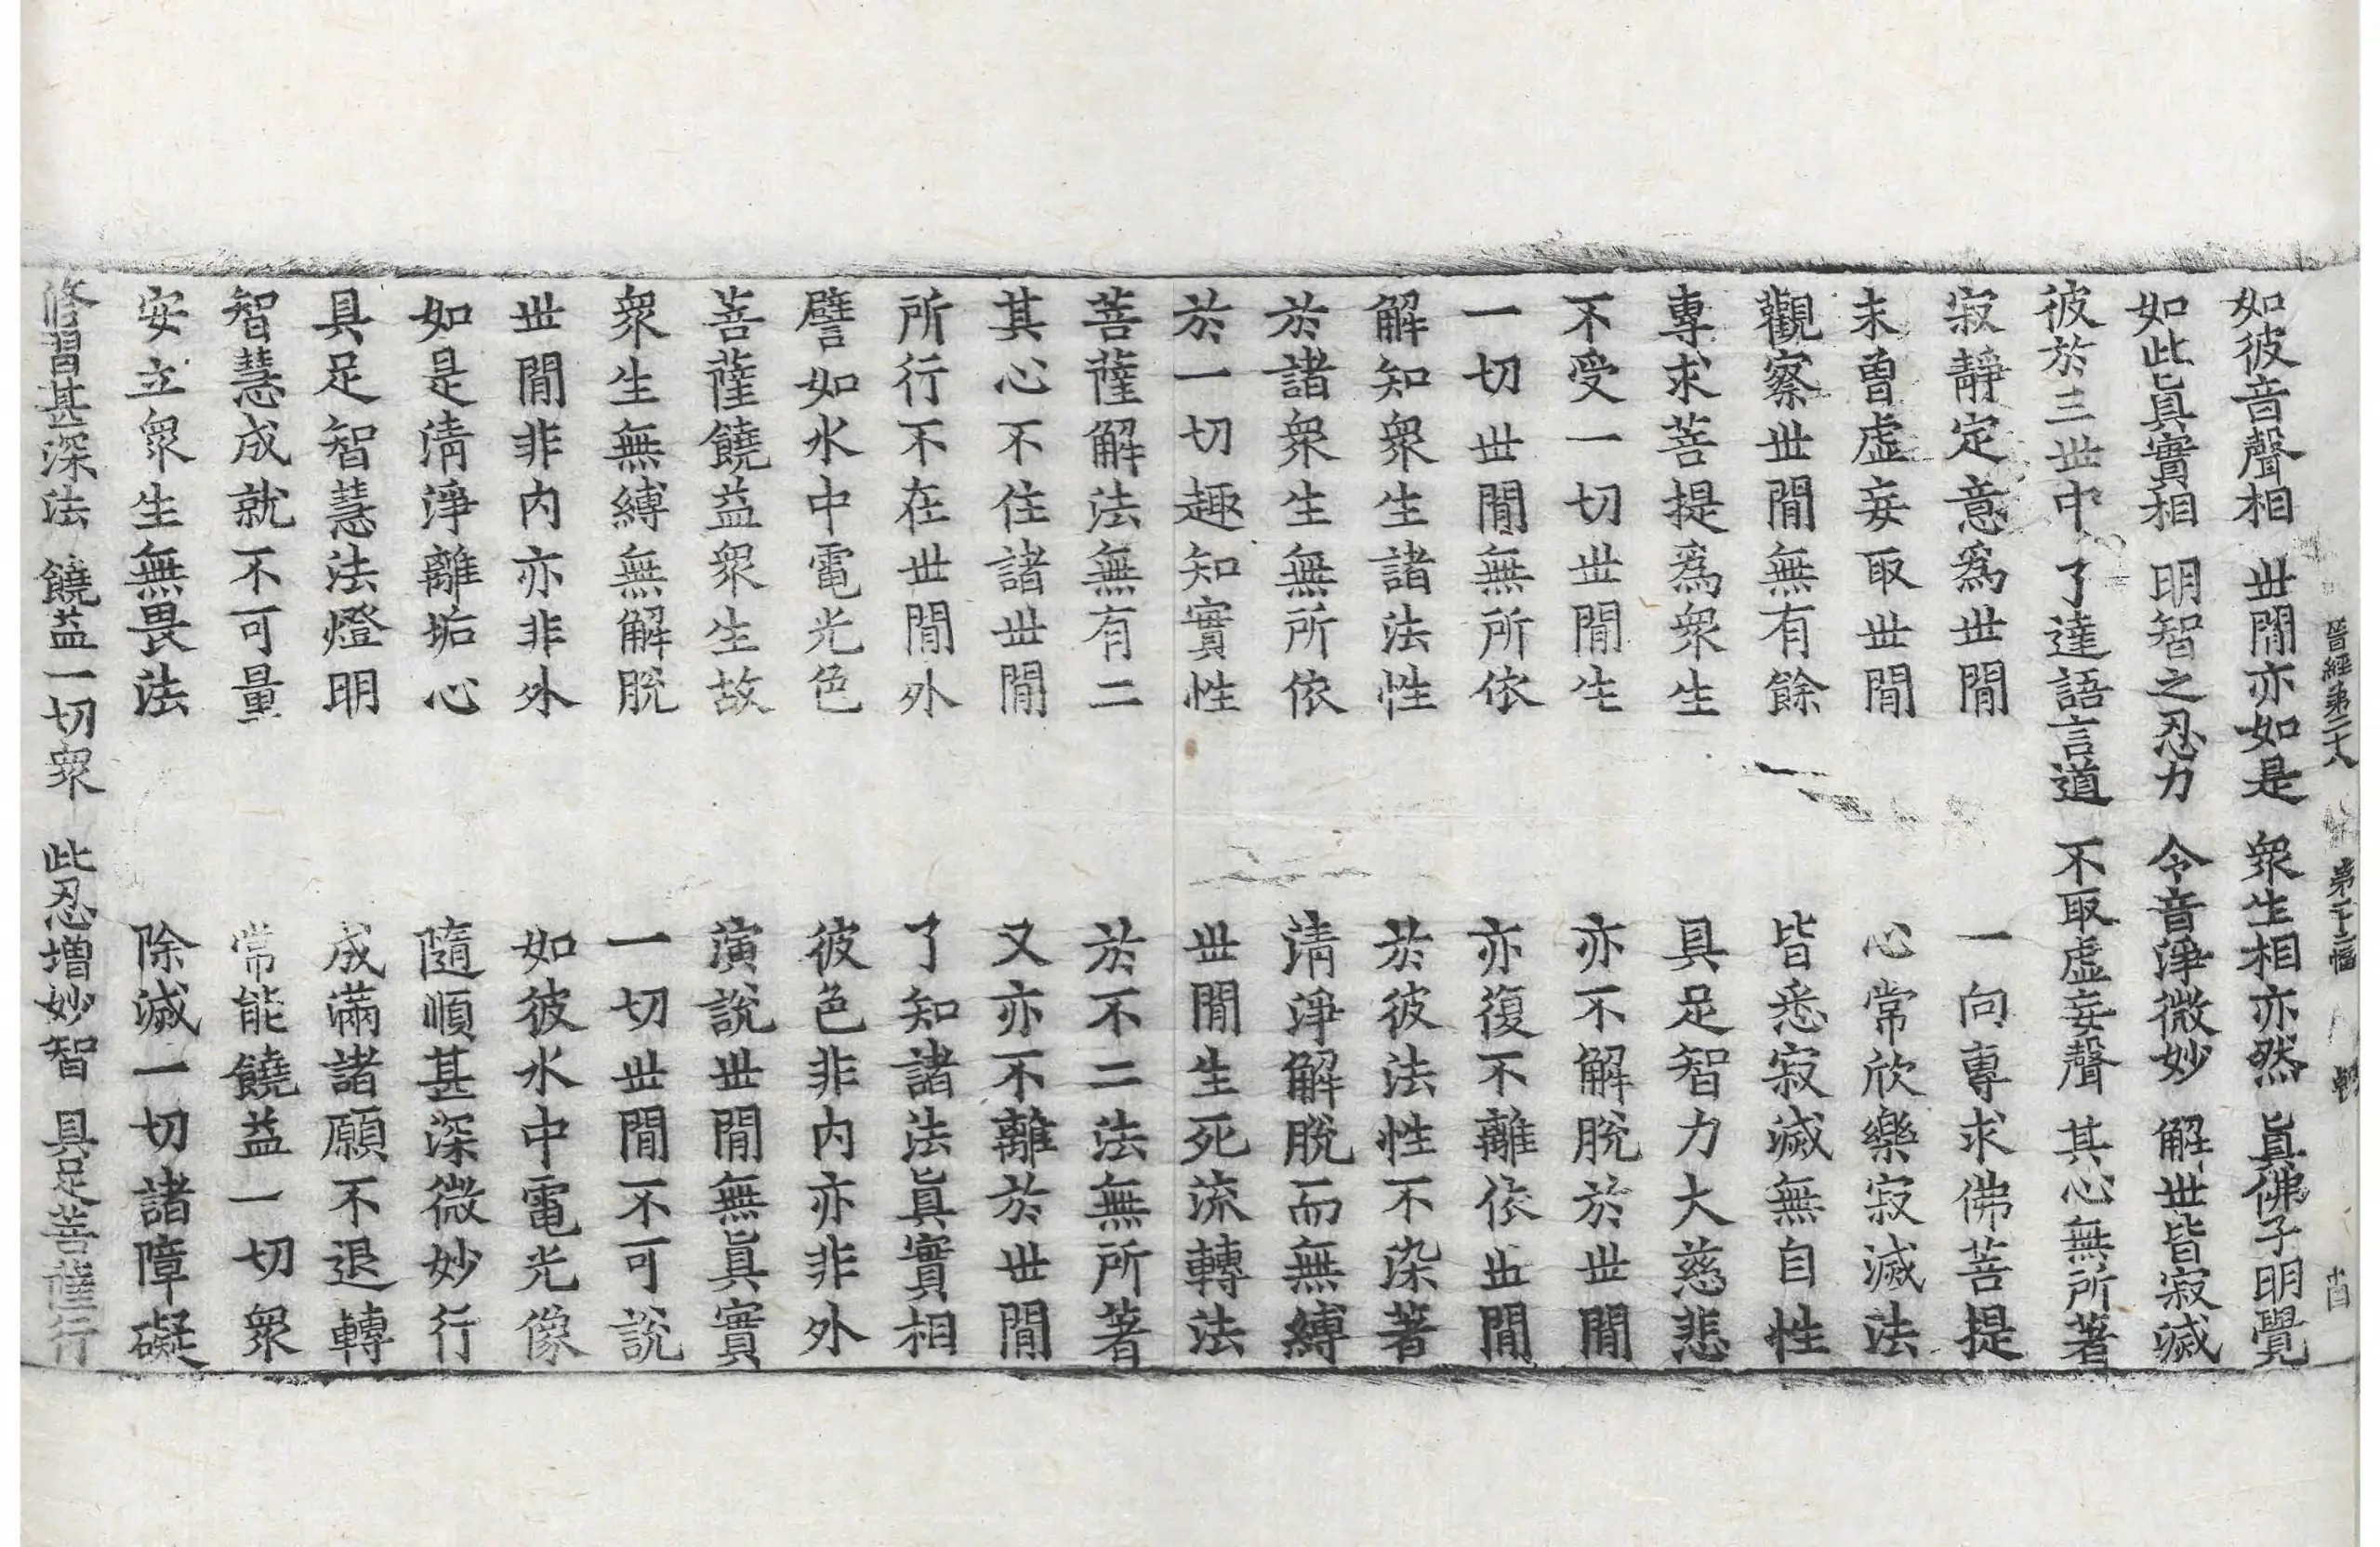 晉經第二十八 第二十三幅 ... 

如彼音聲相 世閒亦如是 衆生相亦然 眞佛子明覺
如此眞實相 明智之忍力 令音淨微妙 解世皆寂滅
彼於三世中 了達語言道 不取虛妄聲 其心無所著
寂靜定意爲世閒 一向專求佛菩提
未曽虛妄取世閒 心常欣樂寂滅法
觀察世閒無有餘 皆悉寂滅無自性
專求菩提爲衆生 具足智力大慈悲
不受一切世閒生 亦不解脫於世閒
一切世閒無所依 亦復不離依世閒
解知衆生諸法性 於彼法性不染著
於諸衆生無所依 淸淨解脫而無縛
於一切趣知實性 世閒生死流轉法
菩薩解法無有二 於不二法無所著
其心不住諸世閒 又亦不離於世閒
所行不在世閒外 了知諸法眞實相
譬如水中電光色 彼色非内亦非外
菩薩饒益衆生故 演說世閒無眞實
衆生無縛無解脫 一切世閒不可說
世閒非内亦非外 如彼水中電光像
如是淸淨離垢心 隨順甚深微妙行
具足智慧法燈明 成滿諸願不退轉
智慧成就不可量 常能饒益一切衆
安立衆生無畏法 除滅一切諸障礙
修習甚深法 饒益一切衆 此忍增妙智 具足菩薩行